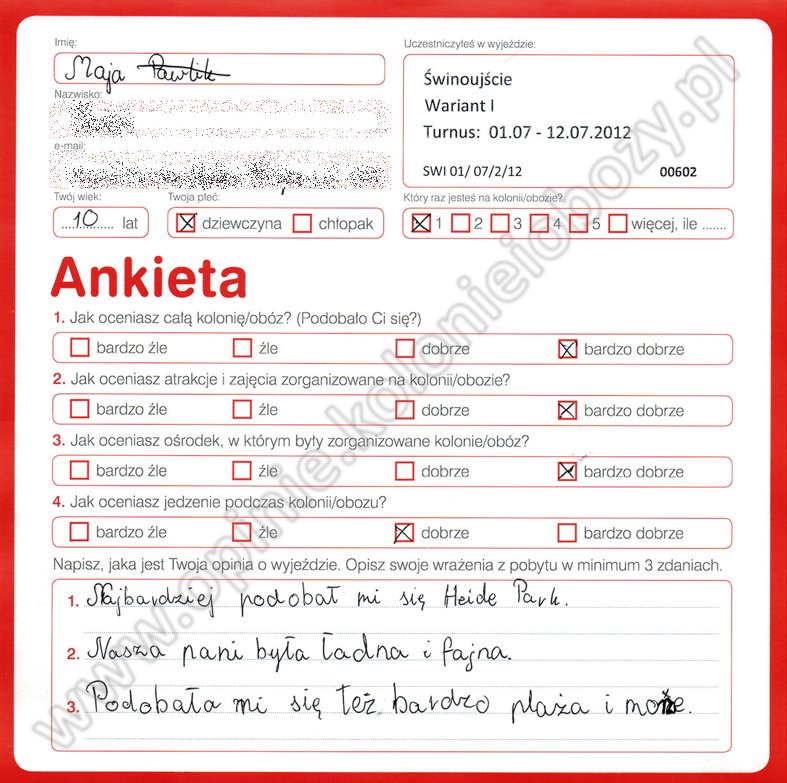 Imię:
Maja Pawlik
Nazwisko:
e-mail:
Twój wiek:
10 lat
Twoja płeć:
dziewczyna chłopak
Uczestniczyłeś w wyjeździe:
Świnoujście
Wariant I
Turnus: 01.07 - 12.07.2012
SWI 01/ 07/2/12 00602
Który raz jesteś na kolonii/obozie?
1 2 3 4 5 więcej, ile .......
Ankieta
1. Jak oceniasz całą kolonię/obóz? (Podobało Ci się?)
bardzo źle źle dobrze bardzo dobrze
2. Jak oceniasz atrakcje i zajęcia zorganizowane na kolonii/obozie?
bardzo źle źle dobrze bardzo dobrze
3. Jak oceniasz ośrodek, w którym były zorganizowane kolonie/obóz?
bardzo źle źle dobrze bardzo dobrze
4. Jak oceniasz jedzenie podczas kolonii/obozu?
bardzo źle źle dobrze bardzo dobrze
Napisz, jaka jest Twoja opinia o wyjeździe. Opisz swoje wrażenia z pobytu w minimum 3 zdaniach.
1. Najbardziej podobał mi się Heide Park.
2. Nasza pani była ładna i fajna.
3. Podobała mi się też bardzo plaża i może.
www.opinie.kolonieiobozy.pl